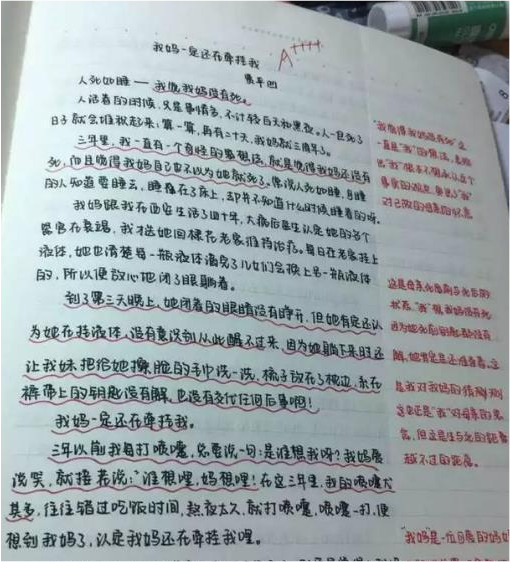 A++++
我妈一定还在牵挂我
贾平凹
人死如睡——我愧我妈没有死。
人活着的时候，只是事情多，不计较白天和黑夜。人一旦死了
日子就会堆积起来：算一算，再有二十天，我妈就三周年了。
三年里，我一直有一个奇怪的想法，就是觉得我妈还没有
死，而且觉得我妈自己也不以为她就死了。常说人死如睡，自睡
的人知道要睡去，睡在了床上，却并不知道什么时候睡着的呀。
我妈跟我在西安生活了四十年，大病后医生认定她的各个
器官在衰竭，我才送她回棣花老家维持治疗。每日在老家挂上
液体，她也清楚每一瓶液体滴完了儿女们会换上另一瓶液体
的，所以便放心地闭了眼躺着。
到了第三天晚上，她闭着的眼睛没有睁开，但她肯定还认
为她在挂液体，没有意识到从此醒不过来，因为她躺下来时还
让我妹把给她擦脸的毛巾洗一洗，梳子放在了枕边，系在
裤带上的钥匙没有解，也没有交代任何后事啊！
我妈一定还在牵挂我。
三年以前我每打喷嚏，总要说一句：是谁想我呀？我妈爱
说笑，就接茬说："谁想哩，妈想哩！在这三年里，我的喷嚏尤
其多，往往错过吃饭时间，熬夜太久，就打喷嚏，喷嚏一打，便
想到我妈了，认定我妈还在牵挂我哩。
"我觉得我妈没有死"这
一直是"我"的想法，表现
出"我"根本不想承认这个
事实的
对已故的母亲的怀念
这是母亲
状态，"我"
因为她
解，她肯定是还活着，这
是我对我妈的猜测
这也正是"我"对母亲的思
念，但这是生与死的距离
越不过的距离。
"我妈"是一位